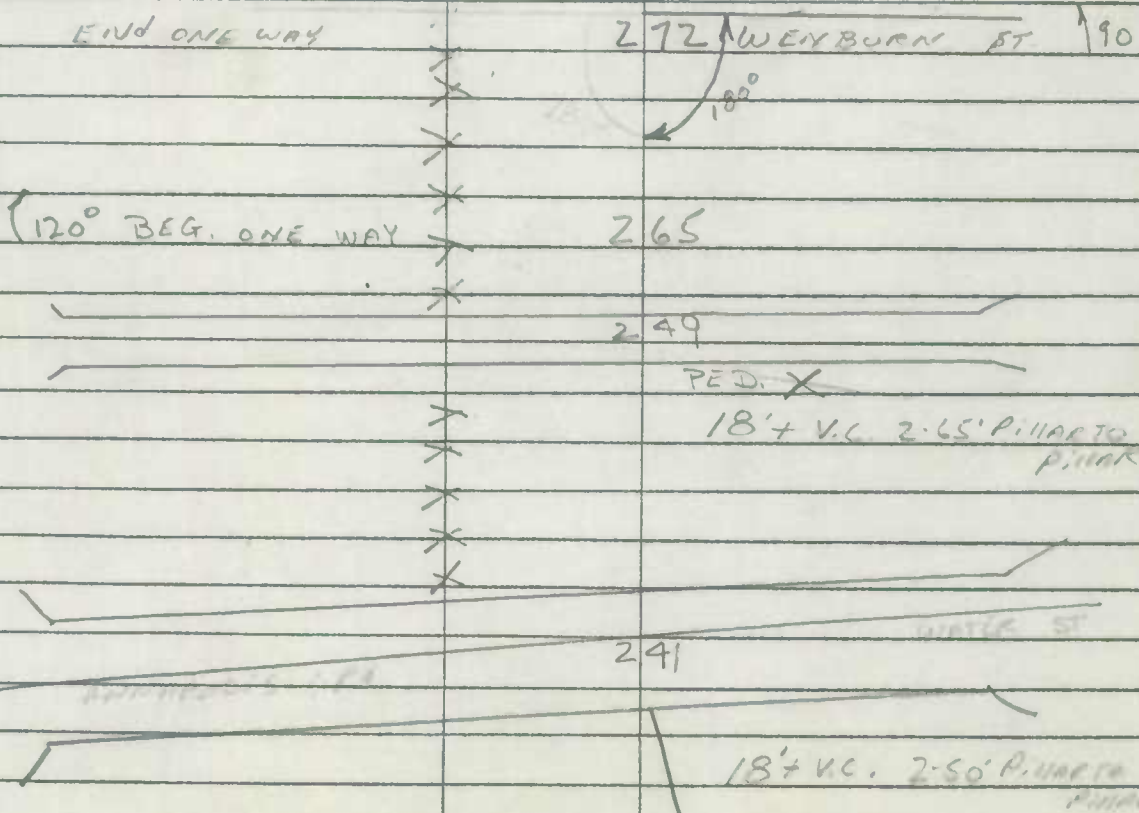 END ONE WAY 2 72 WENBURN ST 90
180°
120° BEG. ONE WAY 2 65
2 49
PED. X
18'+ V.C. 2-65' PILLAR TO
PILLAR
WATER ST
2 41
18'+ V.C. 2-50' PILLAR TO
PILLAR